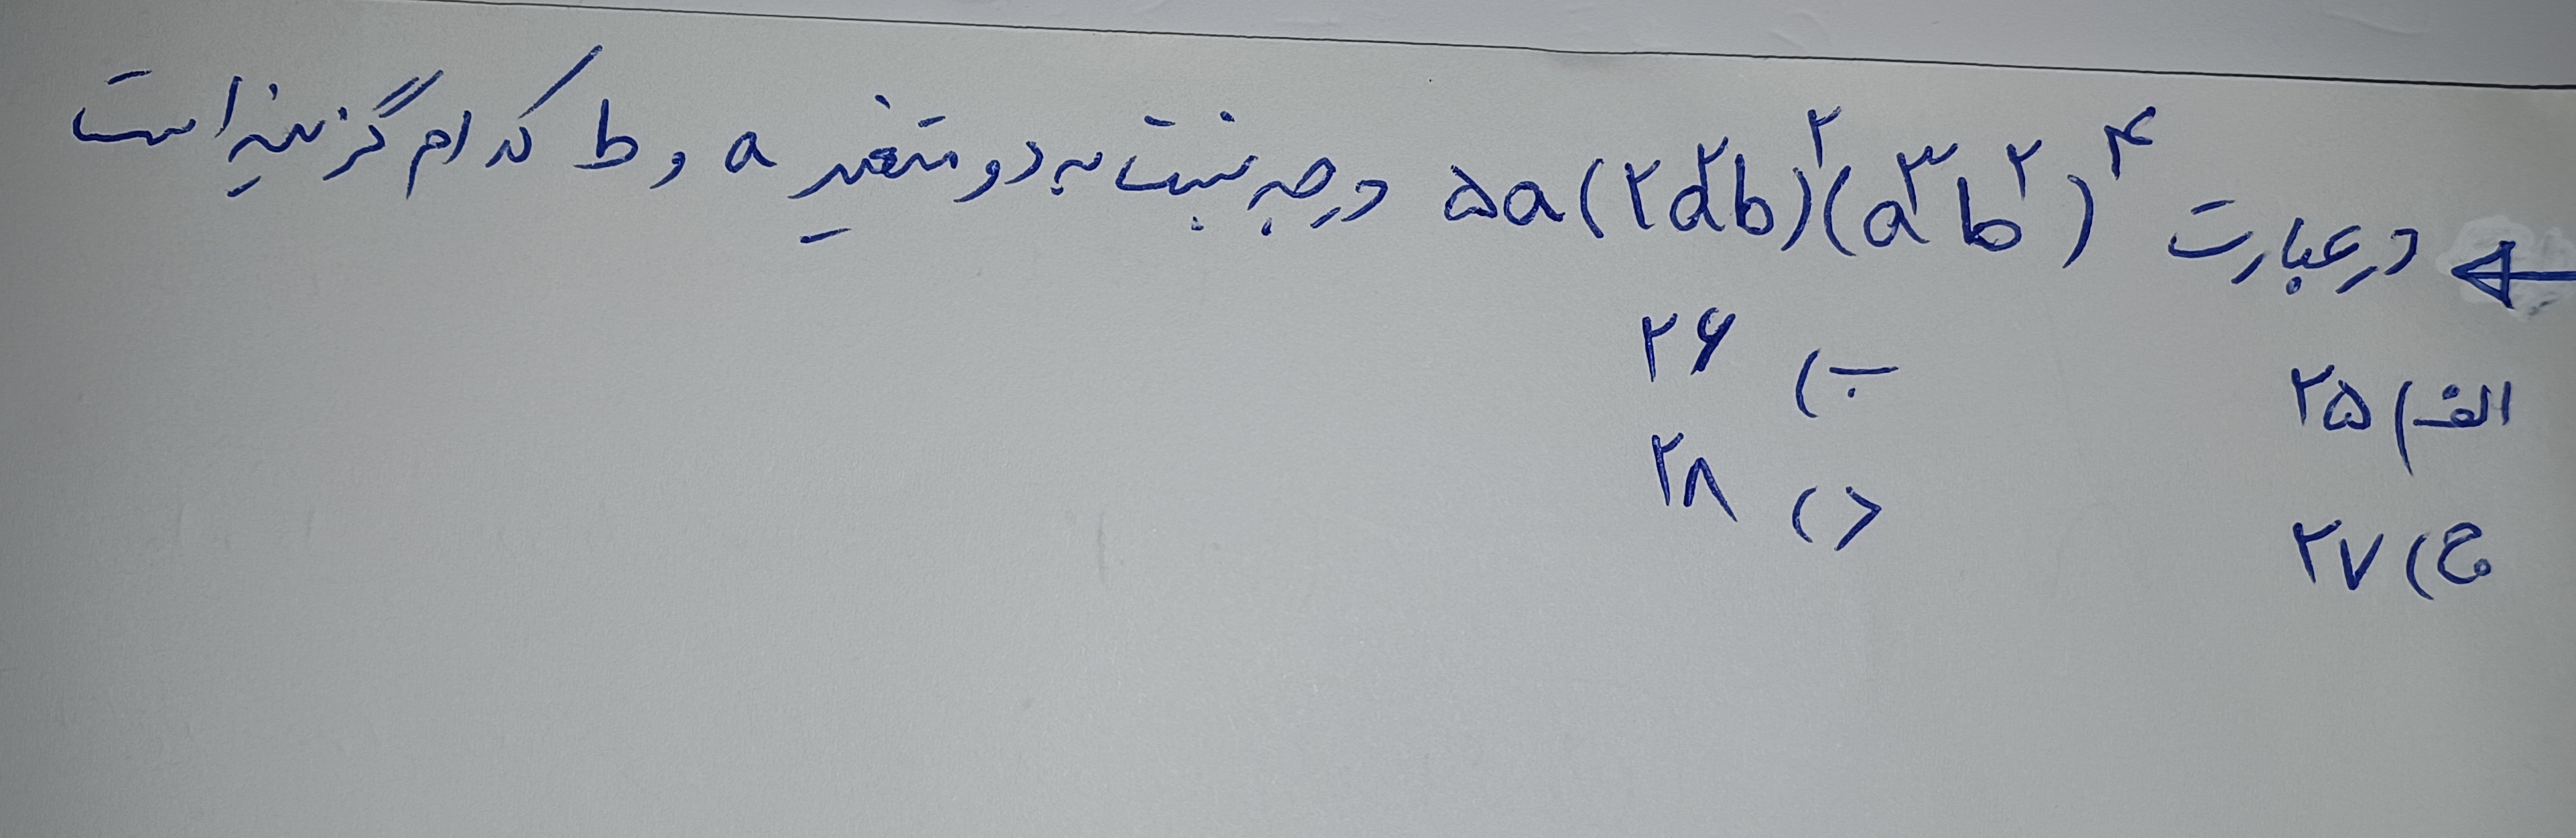 در عبارت ۵a(۲a^۲b)^۲(a^۳b^۲)^۴ درجه نسبت به دو متغیر a و b کدام گزینه است
الف) ۲۵ ب) ۲۶
ج) ۲۷ د) ۲۸